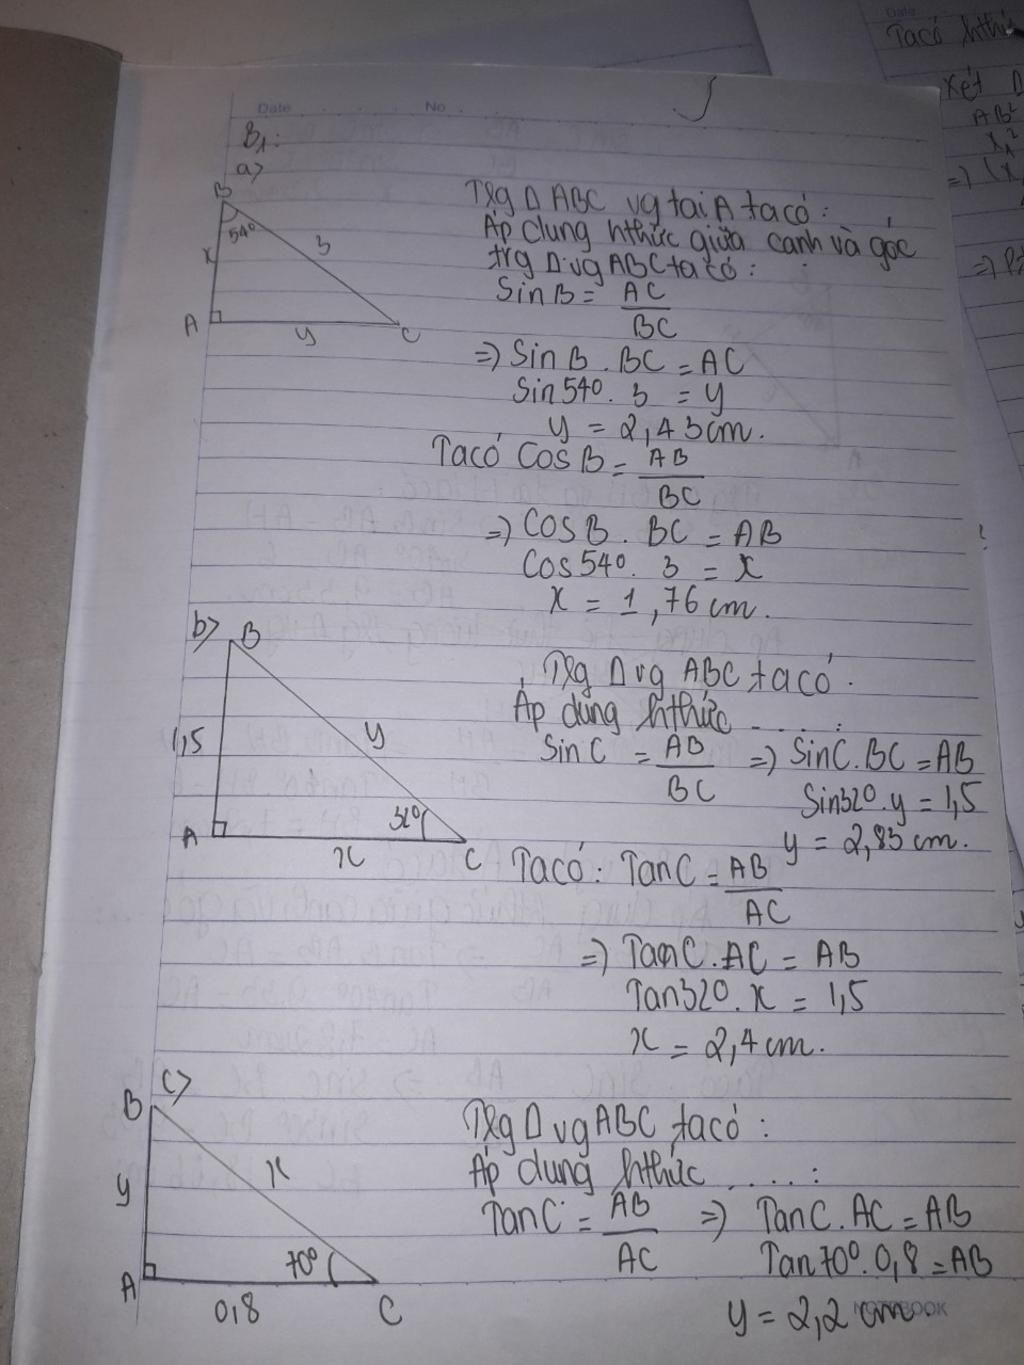 Date No
B1:
a>
Trg Δ ABC vg tai A ta có:
Áp dung hthức giữa canh và góc
trg Δ vg ABC ta có:
B
54°
x
3
A
y
C
Sin B = AC/BC
=> Sin B . BC = AC
Sin 54° . 3 = y
y = 2,43 cm.
Ta có Cos B = AB/BC
=> Cos B . BC = AB
Cos 54° . 3 = x
x = 1,76 cm.
b>
Trg Δ vg ABC ta có.
Áp dung hthức .....:
B
1,5
y
A
32°
x
C
Sin C = AB/BC => Sin C . BC = AB
Sin 32° . y = 1,5
y = 2,83 cm.
Ta có: Tan C = AB/AC
=> Tan C . AC = AB
Tan 32° . x = 1,5
x = 2,4 cm.
c>
Trg Δ vg ABC ta có:
Áp dung hthức .....:
B
x
y
A
70°
0,8
C
Tan C = AB/AC => Tan C . AC = AB
Tan 70° . 0,8 = AB
y = 2,2 cm.
NOTEBOOK
Date
Ta có hthức
Xét Δ
AB²